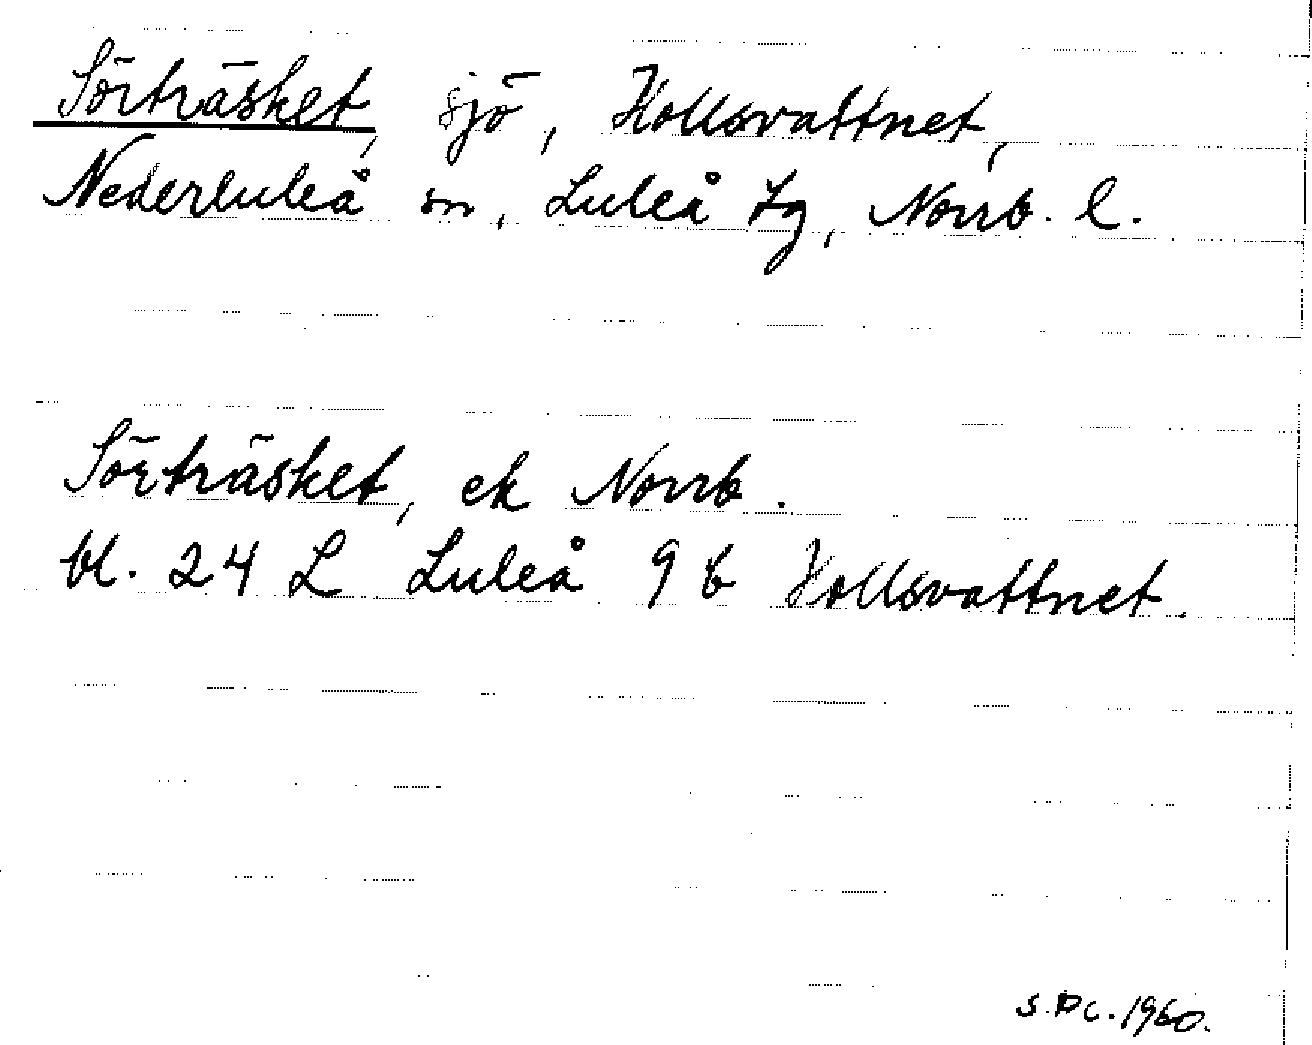 Sörträsket, sjö, Hollsvattnet,
Nederluleå sn, Luleå tg, Norrb. l.
Sörträsket, ek Norrb.
bl. 24 L Luleå 9 b Hollsvattnet.
S.Dc. 1960.